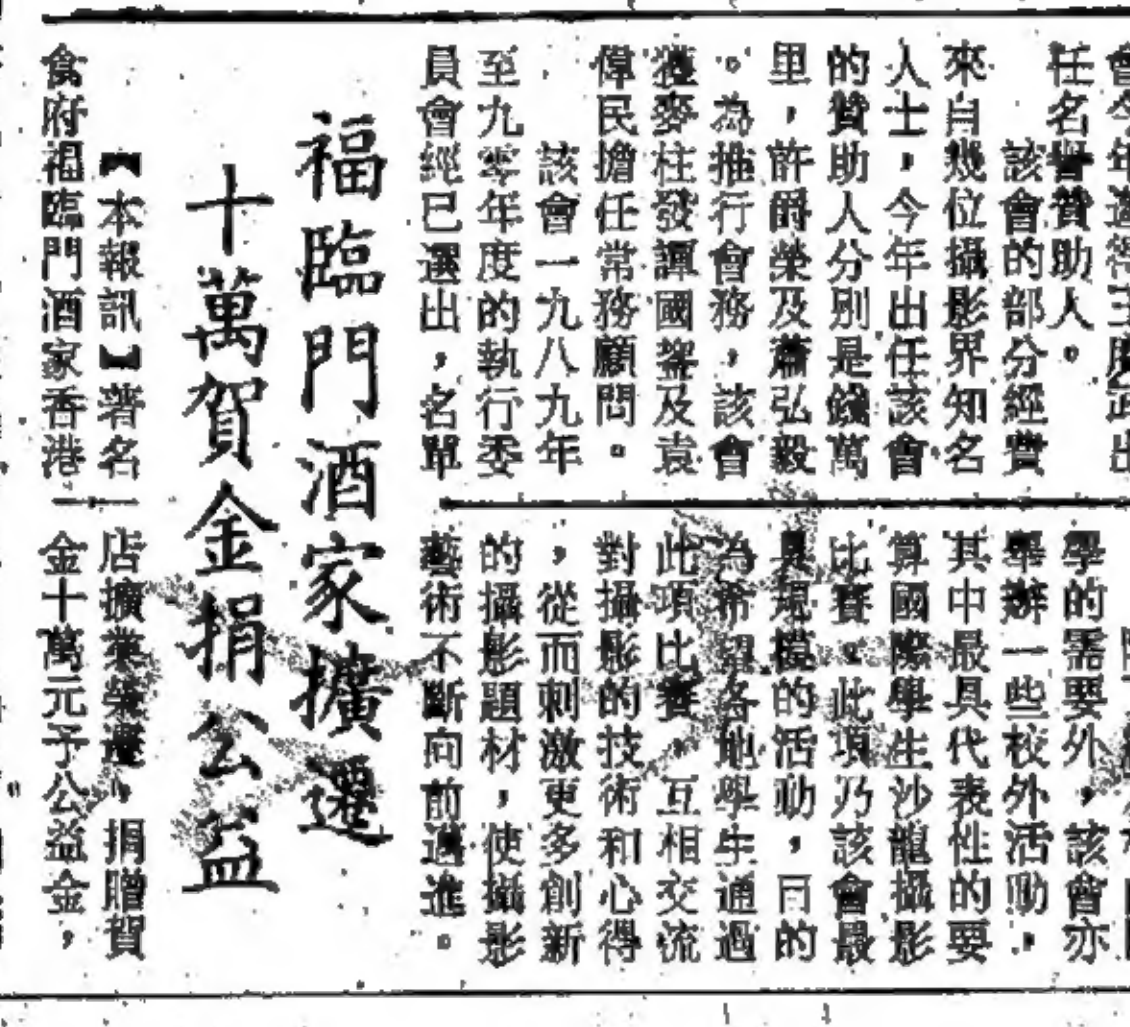 會今年邀得王出
任名譽贊助人。
該會的部分經費
來自幾位攝影界知名
人士，今年出任該會
的贊助人分別是錢萬
里，許爵榮及蕭弘毅
。為推行會務，該會
獲麥柱發譚國及袁
偉民擔任常務顧問。
該會一九八九年
至九零年度的執行委
員會經已選出，名單
學的需要外，該會亦
舉辦一些校外活動，
其中最具代表性的要
算國際學生沙龍攝影
比賽，此項乃該會最
具規模的活動，目的
為希望各地學生通過
此項比賽，互相交流
對攝影的技術和心得
，從而刺激更多創新
的攝影題材，使攝影
藝術不斷向前邁進。
福臨門酒家擴遷
十萬賀金捐公益
【本報訊】著名
食府福臨門酒家香港
店擴業榮遷，捐贈賀
金十萬元予公益金，